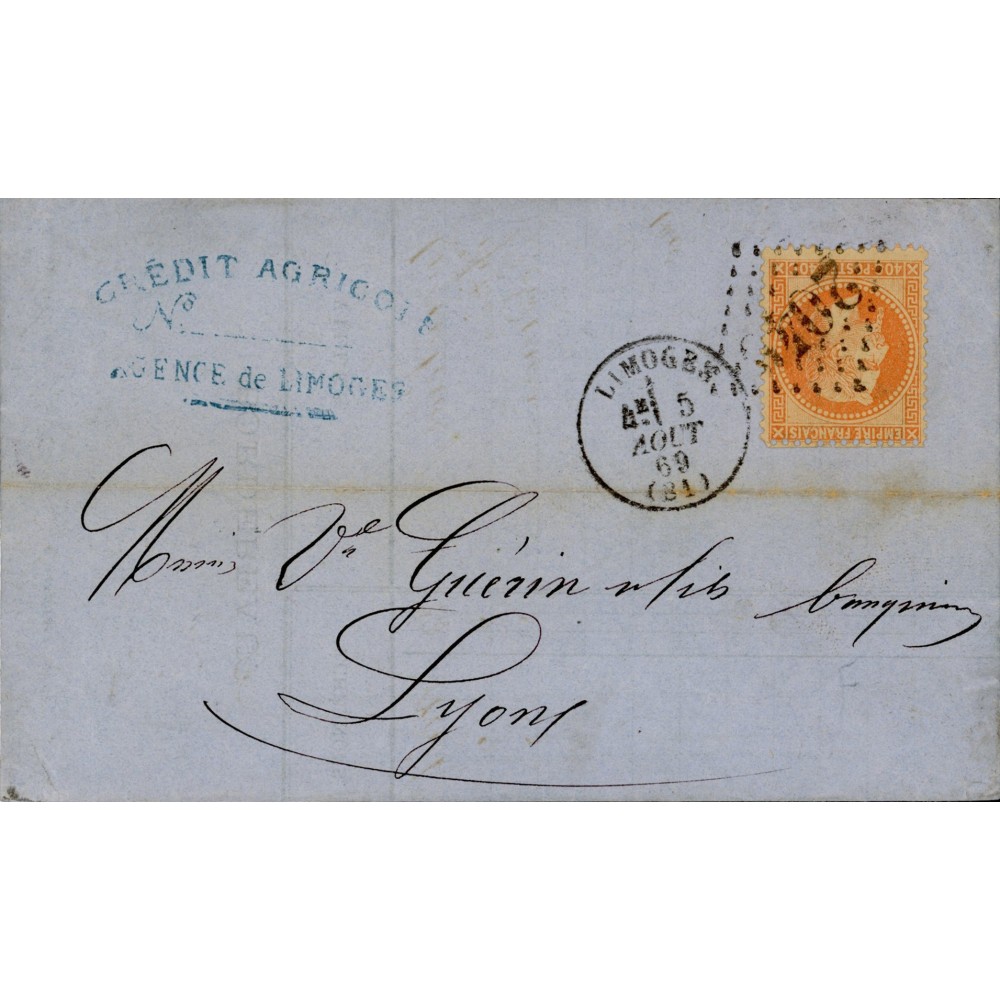 CRÉDIT AGRICOLE
No
AGENCE de LIMOGES
LIMOGES
5
AOUT
69
(81)
EMPIRE FRANÇAIS
Vve Guérin & fils banquiers
Lyon